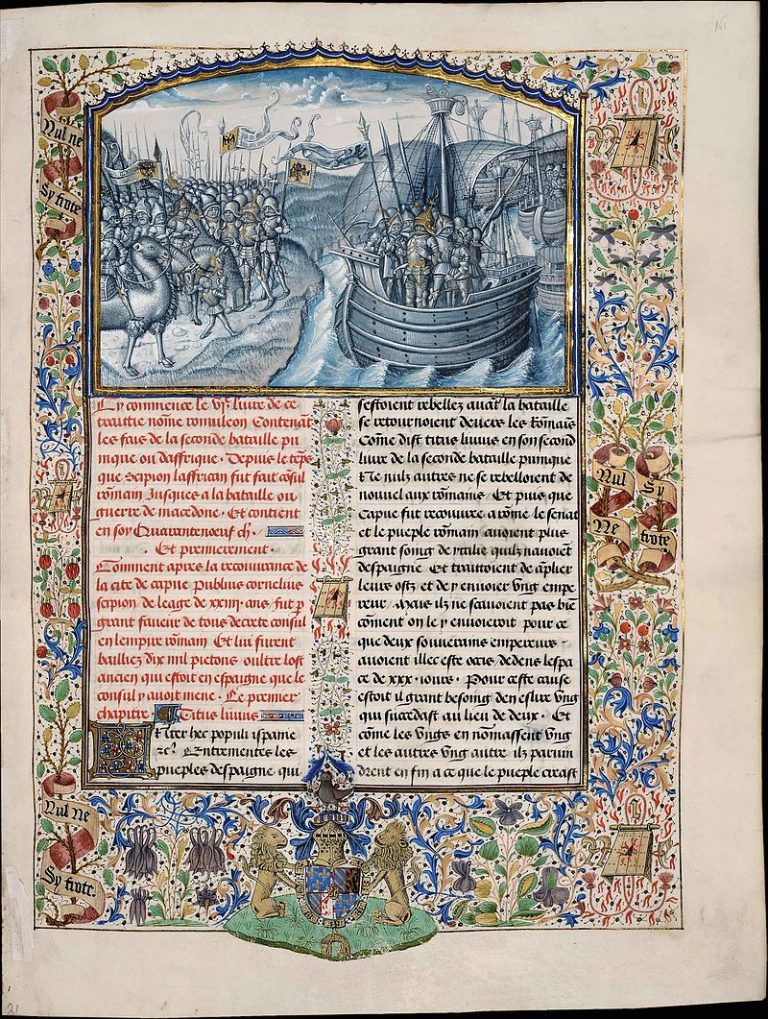 Nul ne
Sy frote
Cy commence le vjᵉ liure de ce
traittie nõme romuleon Contenãt
les fais de la seconde bataille pu
nique ou daffrique · Depuis le tẽps
que Scipion laffricain fut fait cõsul
rõmain Jusques a la bataille ou
guerre de macedone · Et contient
en soy Quarenteneuf chˢ ·
Et premierement ·
Comment apres la recouurance de
la cite de capue Publius cornelius
scipion de leage de xxiiij · ans fut p
grant faueur de tous decrete consul
en lempire rõmain Et lui furent
bailliez dix mil pietons oultre lost
ancien qui estoit en espaigne que le
consul y auoit mene · Le premier
chapitre · Titus liuius
fter hec populi ispanie
zcᵃ Entrementes les
pueples despaigne qui
sestoient rebellez auãt la bataille
se retournoient deuers les Rõmaĩs
Cõme dist titus liuius en son second
liure de la seconde bataille punique
Ne nulz autres ne se rebelloient de
nouuel aux rõmains · Et puis que
Capue fut recouuree a rõme le senat
et le pueple rõmain auoient plus
grant soing de ytalie quilz nauoiẽt
despaigne Et traittoient dãplier
leurs ostz et de y enuoier vng empe
reur · Mais ilz ne scauoient pas biẽ
cõment on le y enuoieroit pour ce
que deux souuerains empereurs
auoient illec este occis dedens lespa
ce de xxx · iours · Pour ceste cause
estoit il grant besoing den eslire vng
qui succedast au lieu de deux · Et
cõme les vngs en nõmassent vng
et les autres vng autre ilz paruin
drent en fin a ce que le pueple creast
Nul Sy
Ne frote
Nul Ne
Sy frote